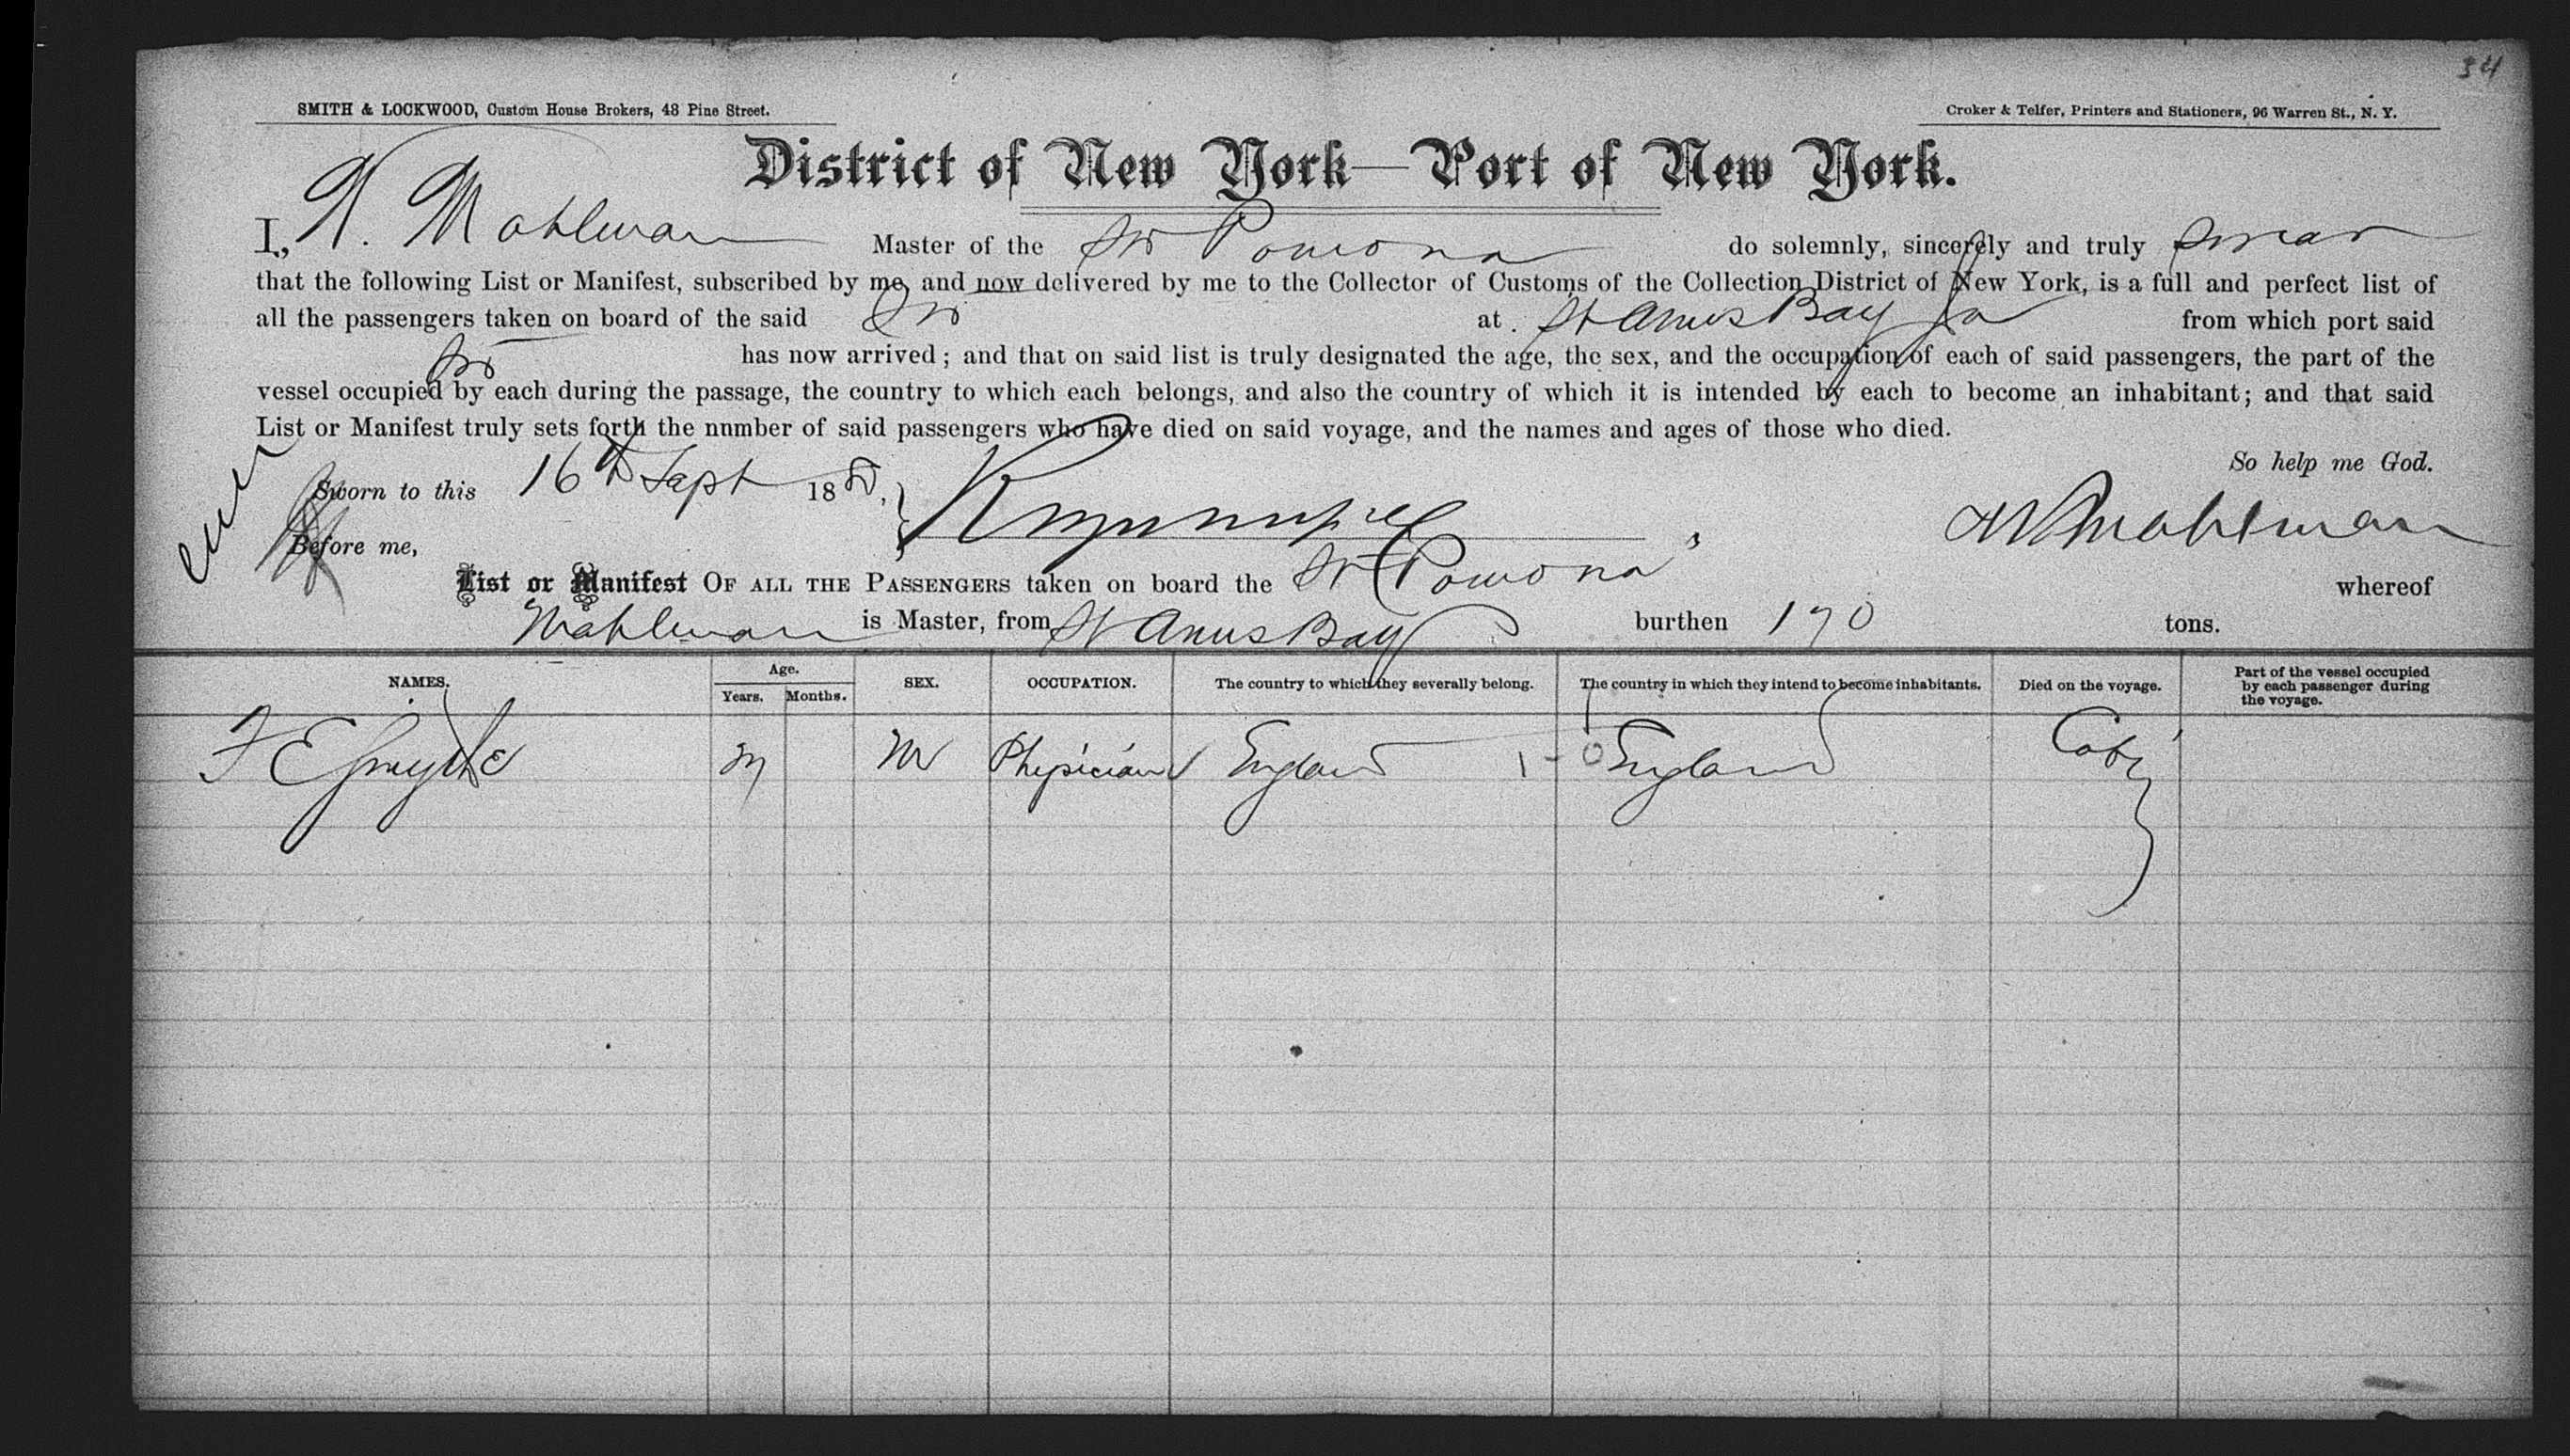 34
SMITH & LOCKWOOD, Custom House Brokers, 48 Pine Street.
Croker & Telfer, Printers and Stationers, 96 Warren St., N. Y.
District of New York—Port of New York.
I, W. Mahlman Master of the Str Pomona do solemnly, sincerely and truly swear
that the following List or Manifest, subscribed by me, and now delivered by me to the Collector of Customs of the Collection District of New York, is a full and perfect list of
all the passengers taken on board of the said Str at St Anns Bay Ja from which port said
Str has now arrived; and that on said list is truly designated the age, the sex, and the occupation of each of said passengers, the part of the
vessel occupied by each during the passage, the country to which each belongs, and also the country of which it is intended by each to become an inhabitant; and that said
List or Manifest truly sets forth the nnmber of said passengers who have died on said voyage, and the names and ages of those who died.
So help me God.
Sworn to this 16th Sept 188
Before me,
W Mahlman
List or Manifest OF ALL THE PASSENGERS taken on board the Str Pomona whereof
Mahlman is Master, from St Anns Bay burthen 170 tons.
NAMES. Age. Years. Months. SEX. OCCUPATION. The country to which they severally belong. The country in which they intend to become inhabitants. Died on the voyage. Part of the vessel occupied by each passenger during the voyage.
F E Smythe M Physician England England